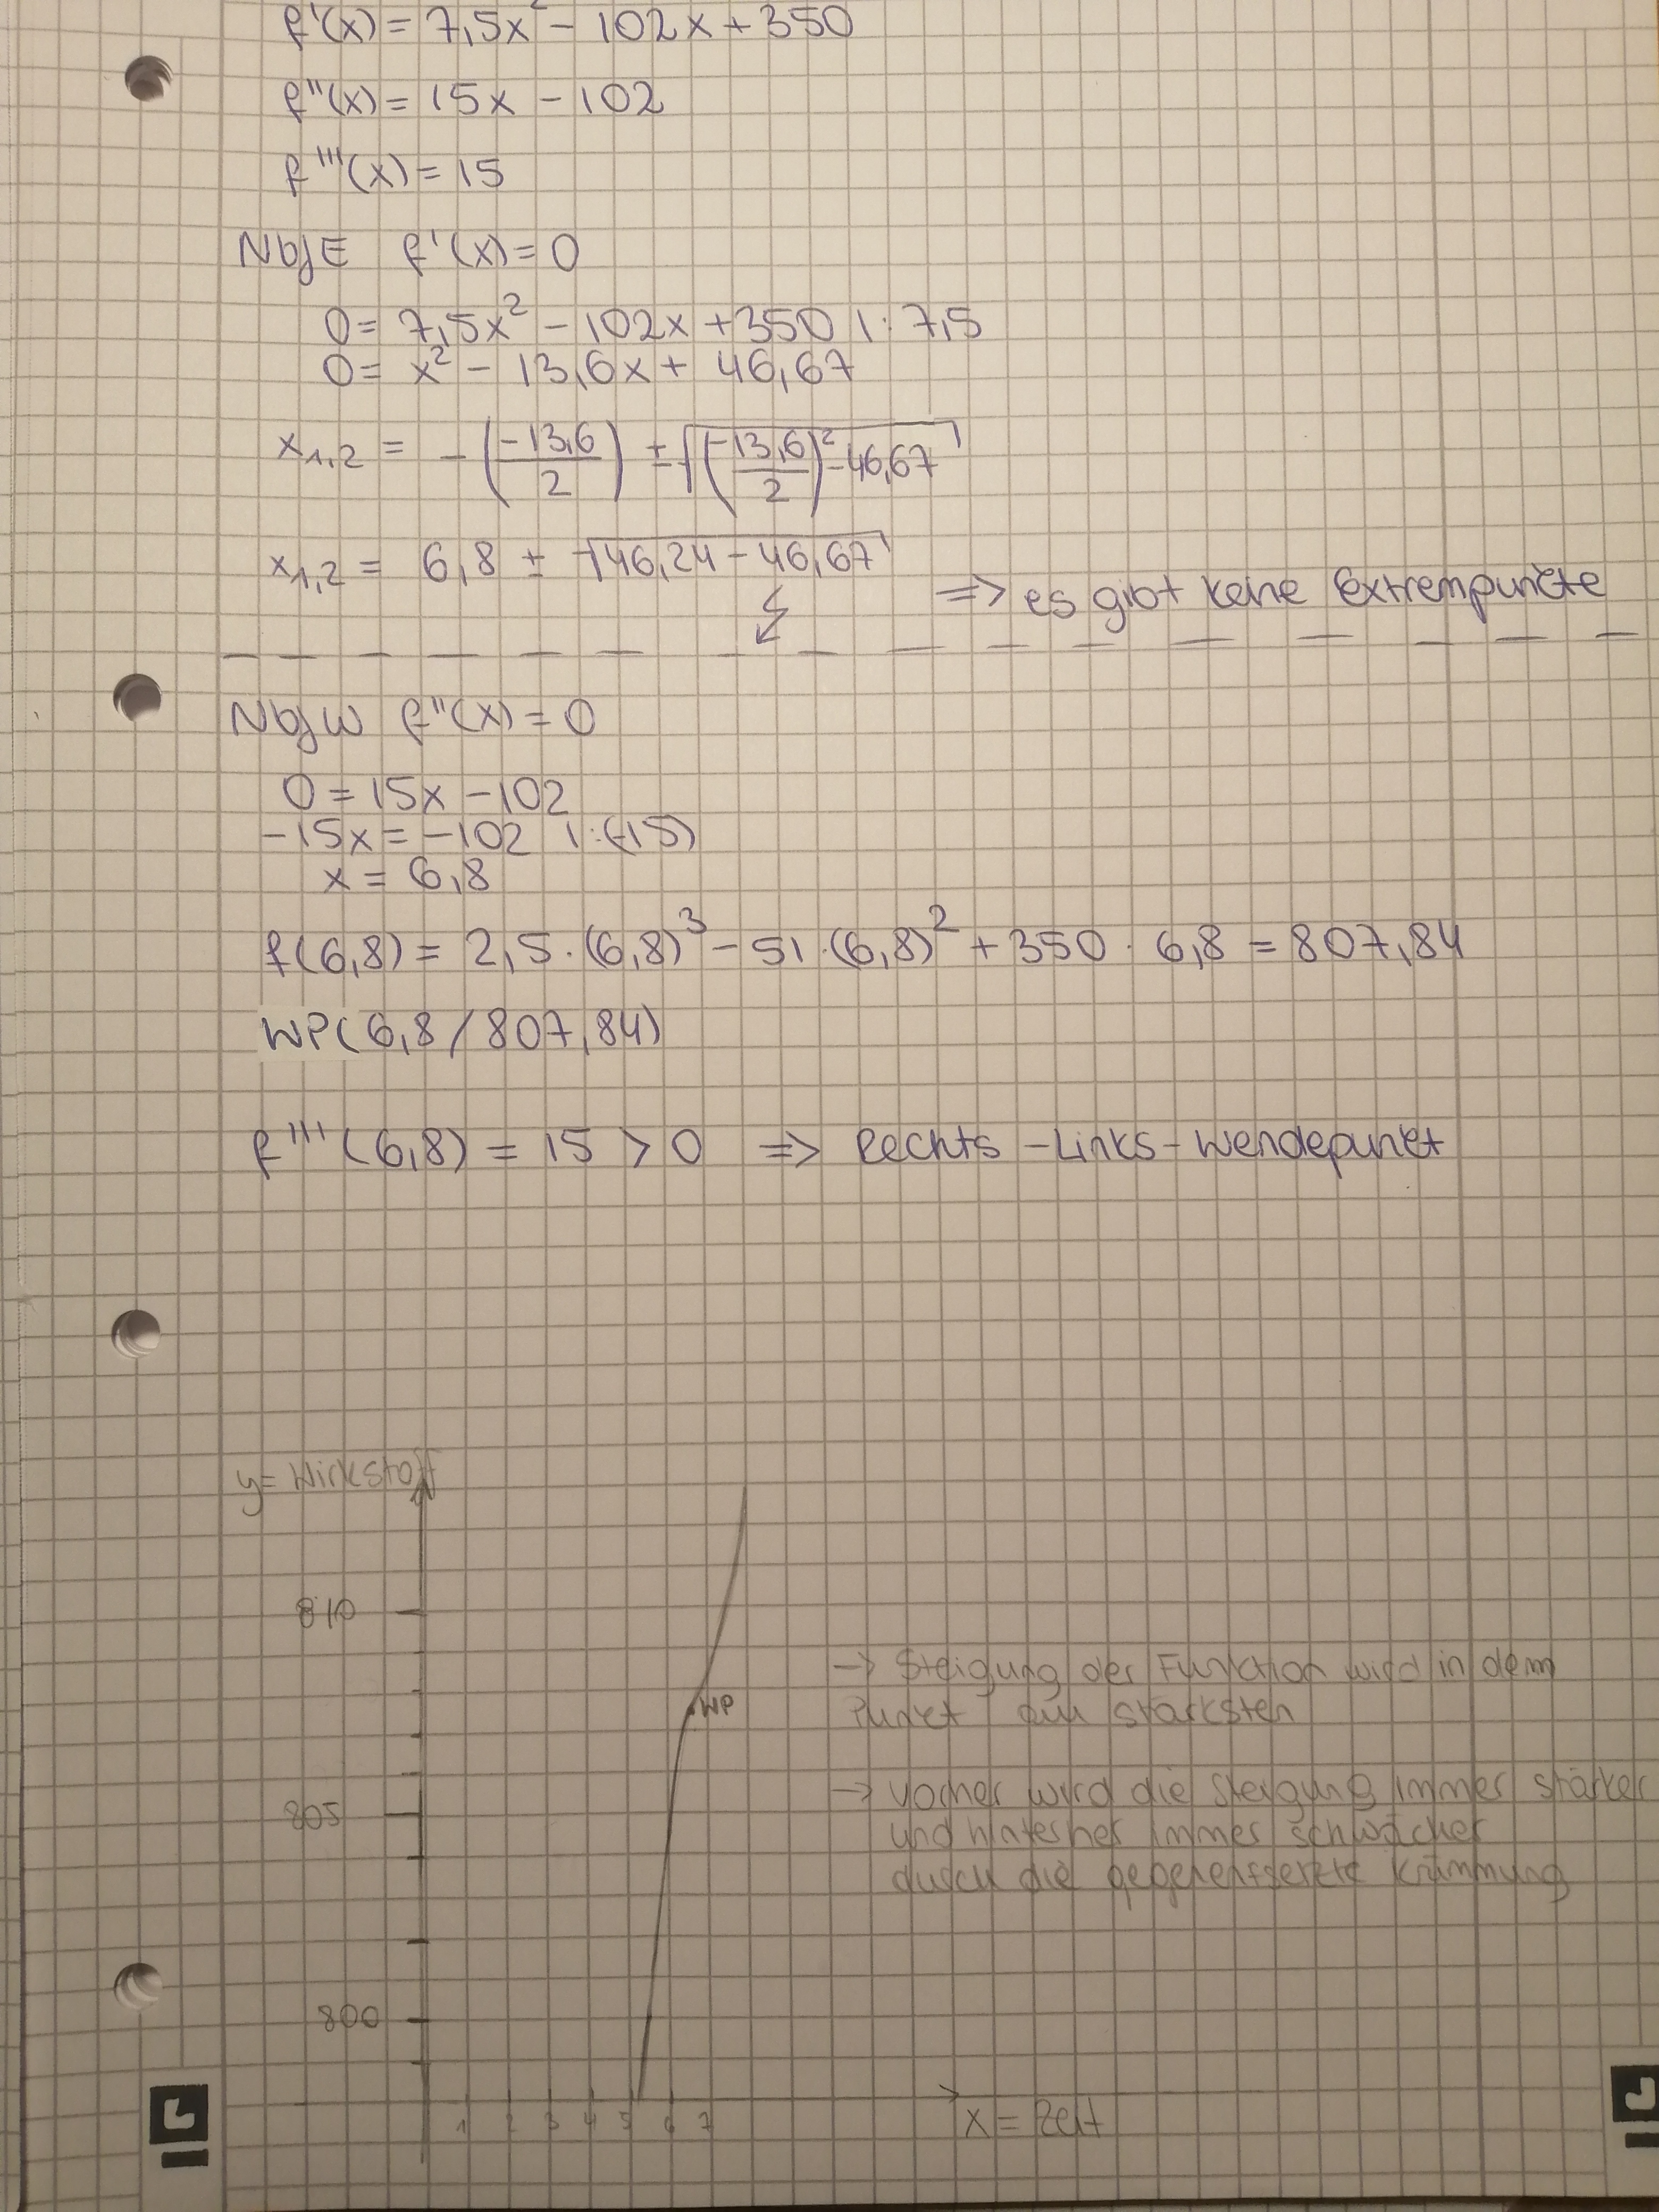 f'(x) = 7,5x² - 102x + 350
f''(x) = 15x - 102
f'''(x) = 15
NbfE f'(x) = 0
0 = 7,5x² - 102x + 350 | : 7,5
0 = x² - 13,6x + 46,67
x₁,₂ = -(-13,6/2) ± √((-13,6/2)² - 46,67)
x₁,₂ = 6,8 ± √(46,24 - 46,67)
=> es gibt keine Extrempunkte
NbfW f''(x) = 0
0 = 15x - 102
-15x = -102 | : (-15)
x = 6,8
f(6,8) = 2,5 · (6,8)³ - 51 · (6,8)² + 350 · 6,8 = 807,84
WP(6,8/807,84)
f'''(6,8) = 15 > 0 => Rechts-Links-Wendepunkt
y = Wirkstoff
810
WP
-> Steigung der Funktion wird in dem
Punkt am stärksten
805
-> vorher wird die Steigung immer stärker
und hinterher immer schwächer
durch die gegenentgesetzte Krümmung
800
1 2 3 4 5 6 7
x = Zeit